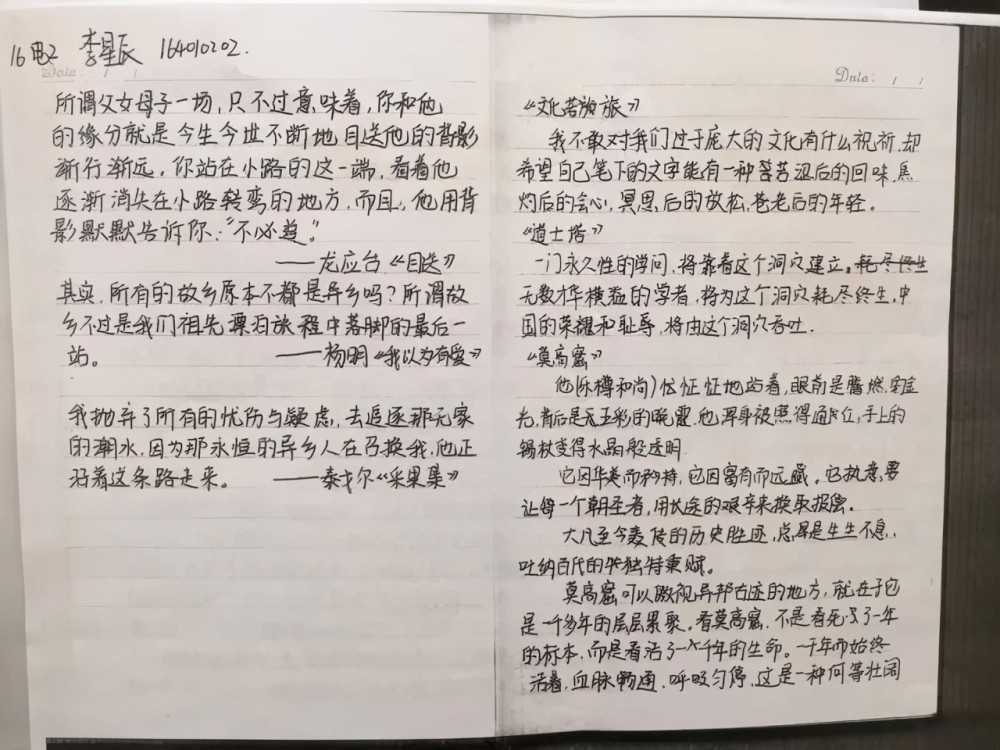 16电2 李星辰 164010202.
Date: / /
所谓父女母子一场,只不过意味着,你和他
的缘分就是今生今世不断地目送他的背影
渐行渐远。你站在小路的这一端,看着他
逐渐消失在小路转弯的地方,而且,他用背
影默默告诉你:“不必追。”
——龙应台《目送》
其实,所有的故乡原本不都是异乡吗?所谓故
乡不过是我们祖先漂泊旅程中落脚的最后一
站。 ——杨明《我以为有爱》
我抛弃了所有的忧伤与疑虑,去追逐那无家
的潮水,因为那永恒的异乡人在召换我,他正
沿着这条路走来。 ——泰戈尔《采果集》
Date: / /
《文化苦旅》
我不敢对我们过于庞大的文化有什么祝祈,却
希望自己笔下的文字能有一种苦涩后的回味,焦
灼后的会心,冥思后的放松,苍老后的年轻。
《道士塔》
一门永久性的学问,将靠着这个洞穴建立。耗尽终生
无数才华横溢的学者,将为这个洞穴耗尽终生,中
国的荣耀和耻辱,将由这个洞穴吞吐.
《莫高窟》
他(乐樽和尚)怔怔地站着,眼前是腾燃,金
光,背后是五彩的晚霞,他浑身被照得通红,手上的
锡杖变得水晶般透明.
它因华美而矜持,它因富有而远藏。它执意要
让每一个朝圣者,用长途的艰辛来换取报偿。
大凡至今轰传的历史胜迹,总是生生不息,
吐纳百代的独特秉赋。
莫高窟可以傲视异邦古迹的地方,就在于它
是一千多年的层层累聚。看莫高窟,不是看死了一年
的标本,而是看活了一千年的生命。一千年而始终
活着,血脉畅通、呼吸匀停,这是一种何等壮阔